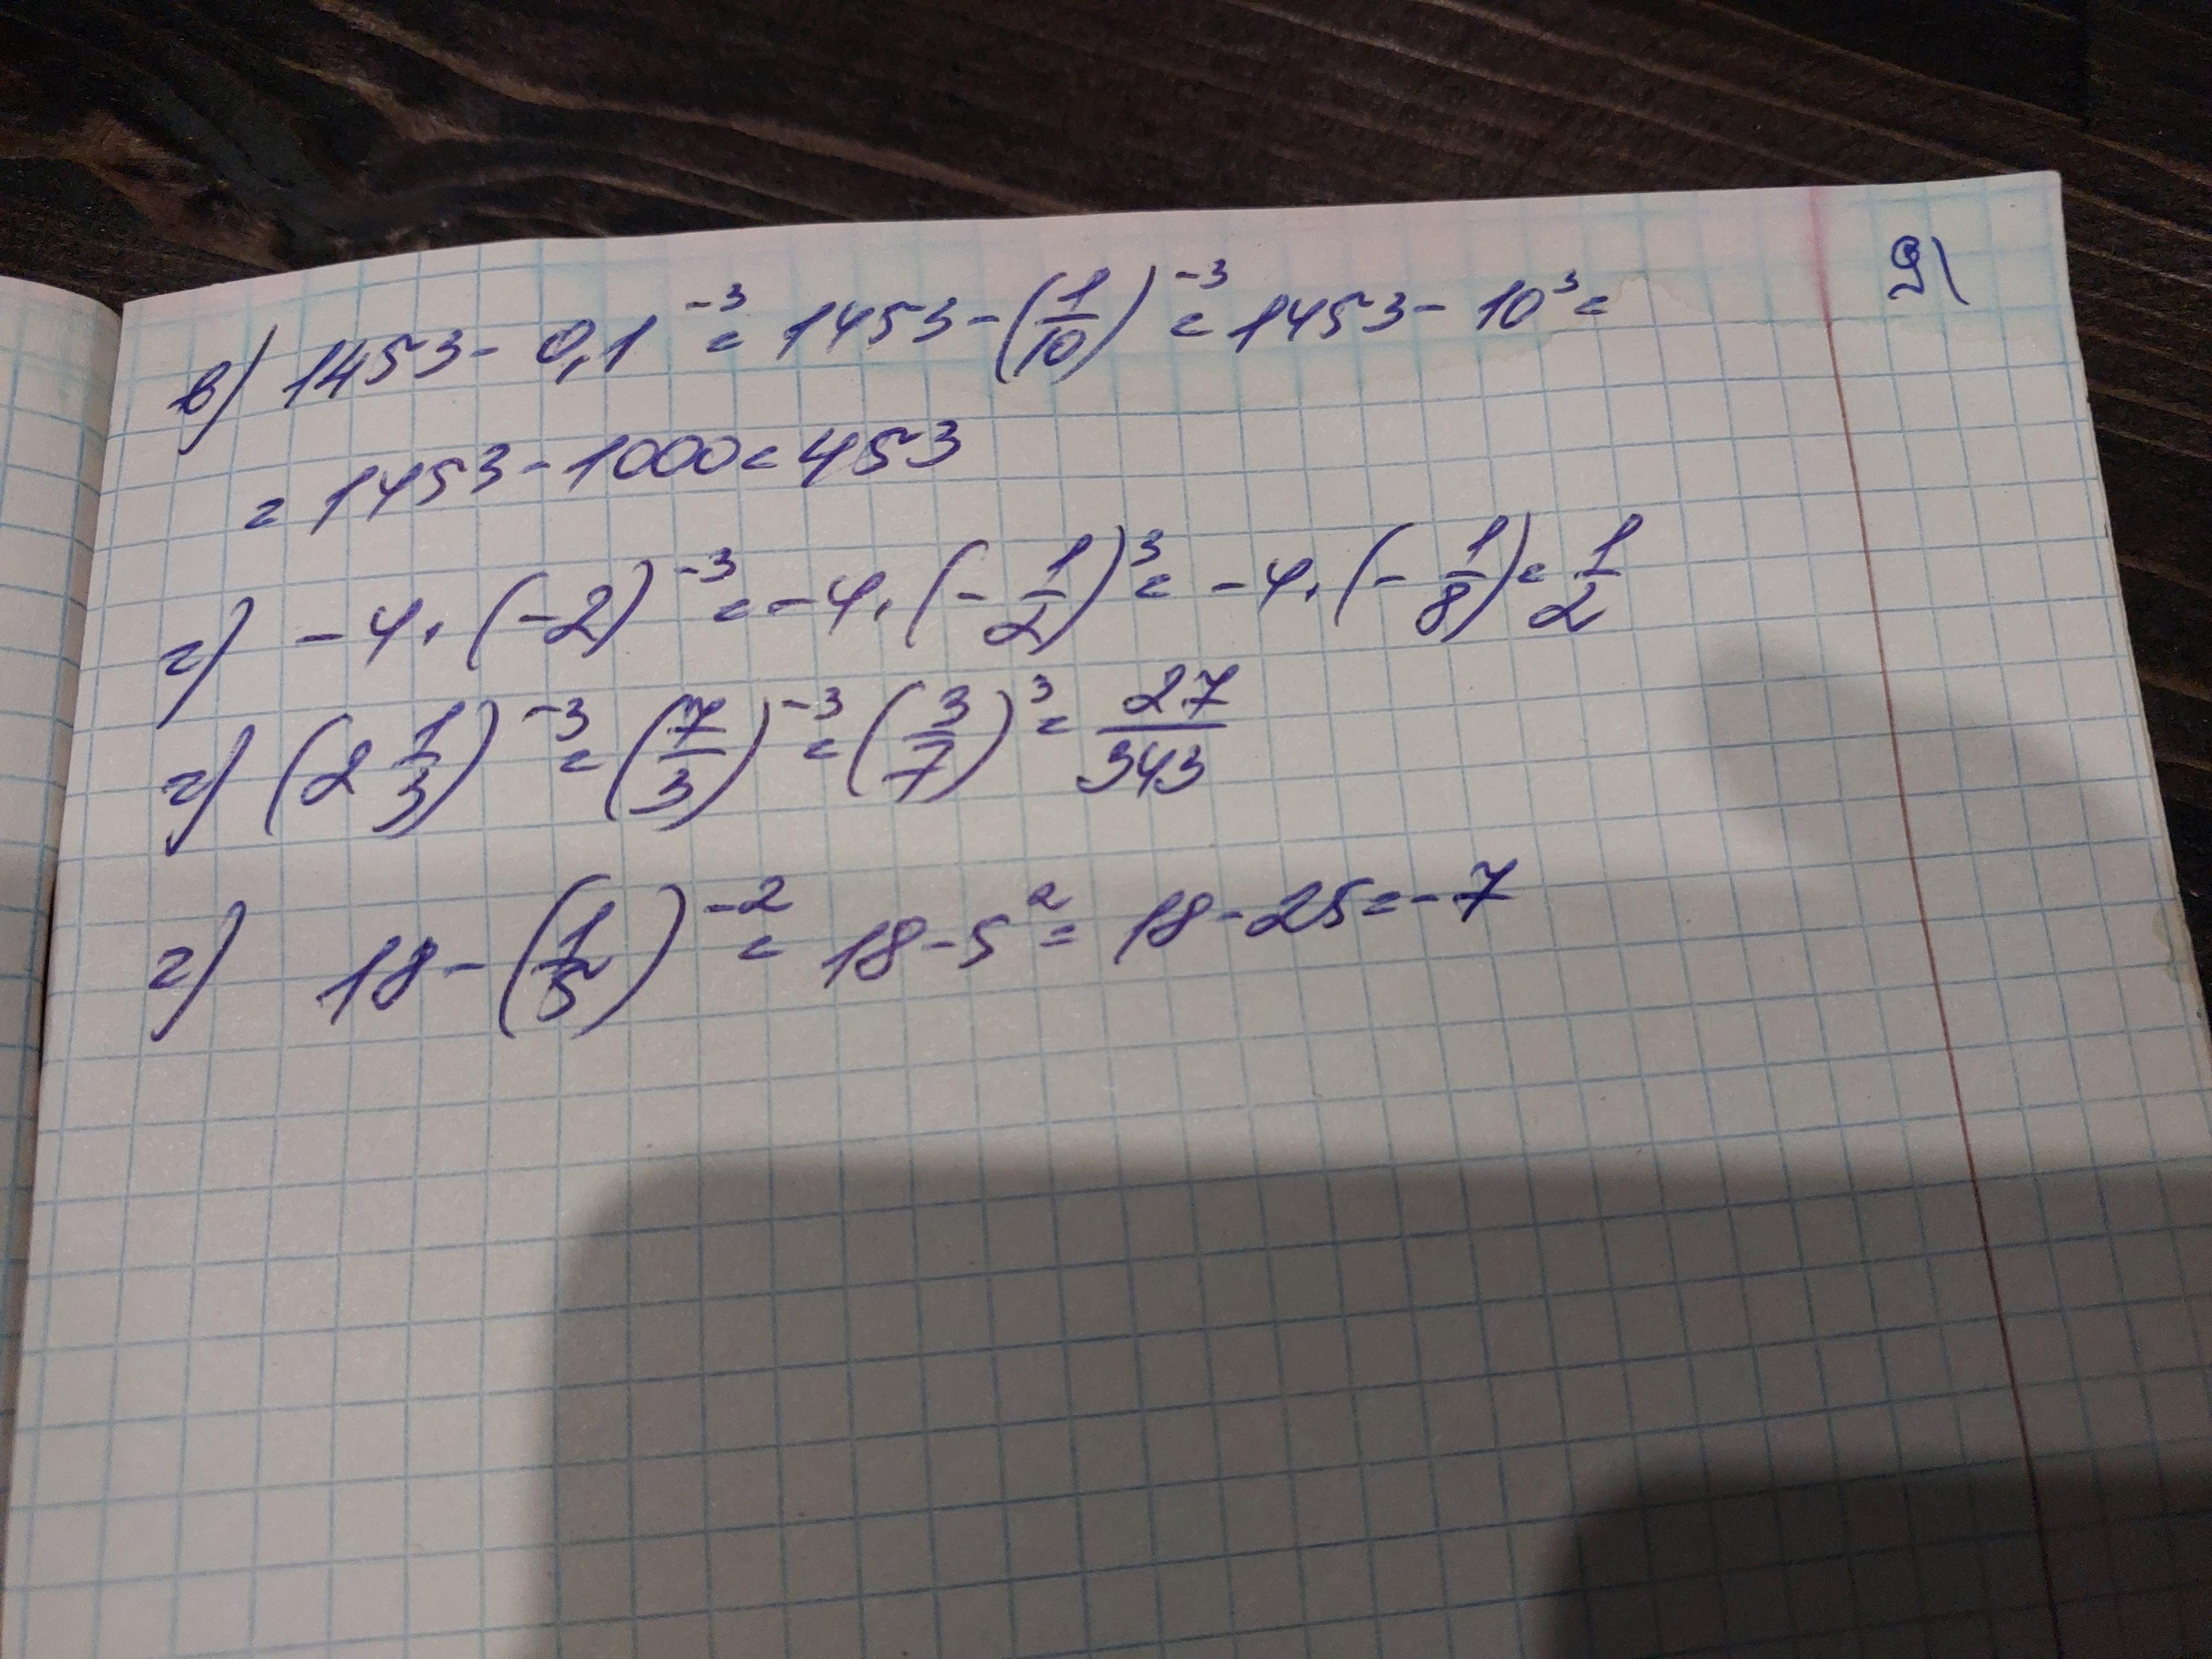 21
в) 1453 - 0,1^-3 = 1453 - (1/10)^-3 = 1453 - 10^3 =
= 1453 - 1000 = 453
г) -4 · (-2)^-3 = -4 · (-1/2)^3 = -4 · (-1/8) = 1/2
г) (2 1/3)^-3 = (7/3)^-3 = (3/7)^3 = 27/343
г) 18 - (1/5)^-2 = 18 - 5^2 = 18 - 25 = -7